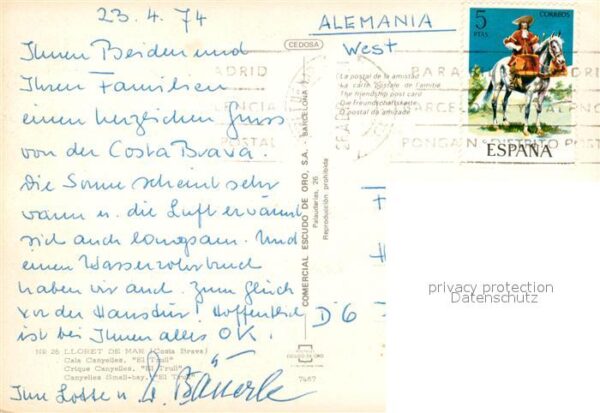 23.4.74
ALEMANIA
West
Ihnen Beiden und
Ihren Familien
einen herzlichen Gruss
von der Costa Brava.
Die Sonne scheint sehr
warm u. die Luft erwärmt
sich auch langsam. Und
einen Wasserrohrbruch
haben wir auch. Zum Glück
vor der Haustür! Hoffentlich
ist bei Ihnen alles OK!
Ihre Lotte u. Bäuerle
CEDOSA
La postal de la amistad
La carte postale de l'amitié
The friendship post card
Die Freundschaftskarte
O postal da amizade
COMERCIAL ESCUDO DE ORO, S.A. - BARCELONA
Palaudarias, 26
Reproducción prohibida
5
PTAS
CORREOS
ESPAÑA
MADRID
POSTAL
PONGA N. DISTRITO POSTAL
D 6
privacy protection
Datenschutz
NR 26 LLORET DE MAR (Costa Brava)
Cala Canyelles, "El Trull"
Crique Canyelles, "El Trull"
Canyelles Small-bay, "El Trull"
ESCUDO DE ORO
7467